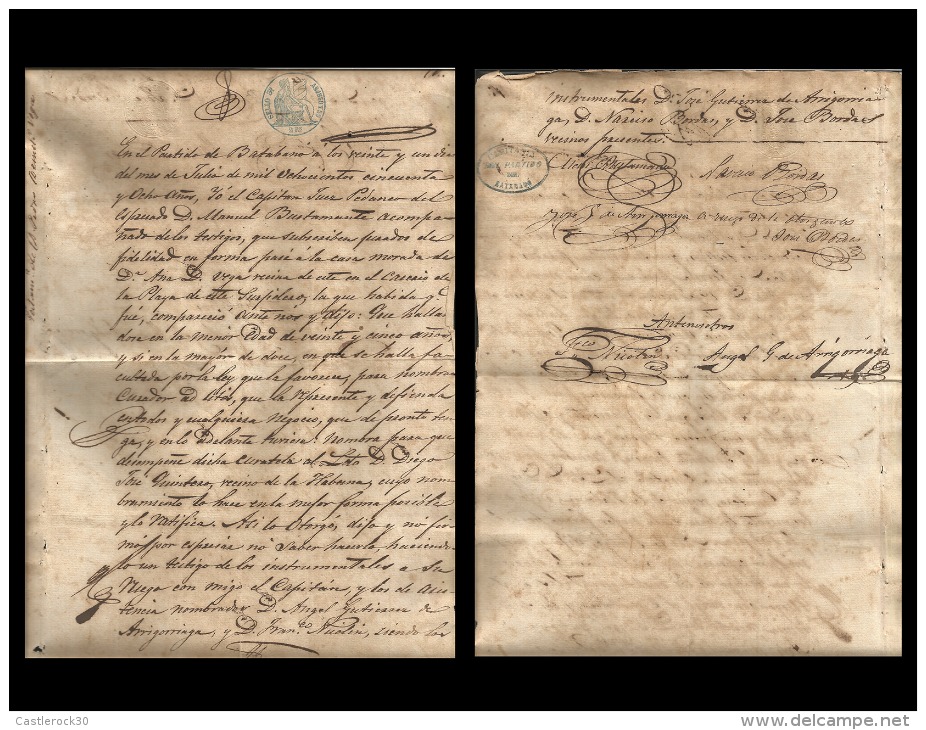 En el Partido de Batabanó a los veinte y un dia
del mes de Julio de mil ochocientos cincuenta
y ocho años, Yó el Capitan Juez Pedáneo del
espresado D. Manuel Bustamante acompa-
ñado de los testigos, que subscriben
fidelidad en forma pasé a la casa morada de
Dª Ana D. Vega vecina de este en el Caserio de
la Playa de este Surgidero, la que habida q.
fue, compareció ante nos y dijo: Que hallan-
dose en la menor Edad de veinte y cinco años,
y si en la mayor de doce, en que se halla fa-
cultada por la ley que la favorece, para nombrar
Curador ad litis, que la represente y defienda
en todos y cualquiera negocio, que de pronto ten-
ga, y en lo adelante tuviere: Nombra para que
desempeñe dicha curatela al Ldo D. Diego
José Quintero, vecino de la Habana, cuyo nom-
bramiento lo hace en la mejor forma posible
y lo ratifica. Asi lo otorgó, dijo y nó fir-
mó por espresar nó saber hacerlo, hacien-
lo un testigo de los instrumentales a su
ruego con migo el Capitán, y los de asis-
tencia nombrados D. Angel Gutierrez de
Arrigorriaga, y D. Fran.co Nicolin, siendo los
instrumentales D. José Gutierrez de Arrigorria-
ga, D. Narciso Bordas, y D. José Bordas
vecinos presentes.
Bustamante
Narciso Bordas
José G. de Arrigorriaga A ruego de la otorgante
José Bordas
Antenosotros
Fco Nicolin
Angel G. de Arrigorriaga
Castlerock30
www.delcampe.net